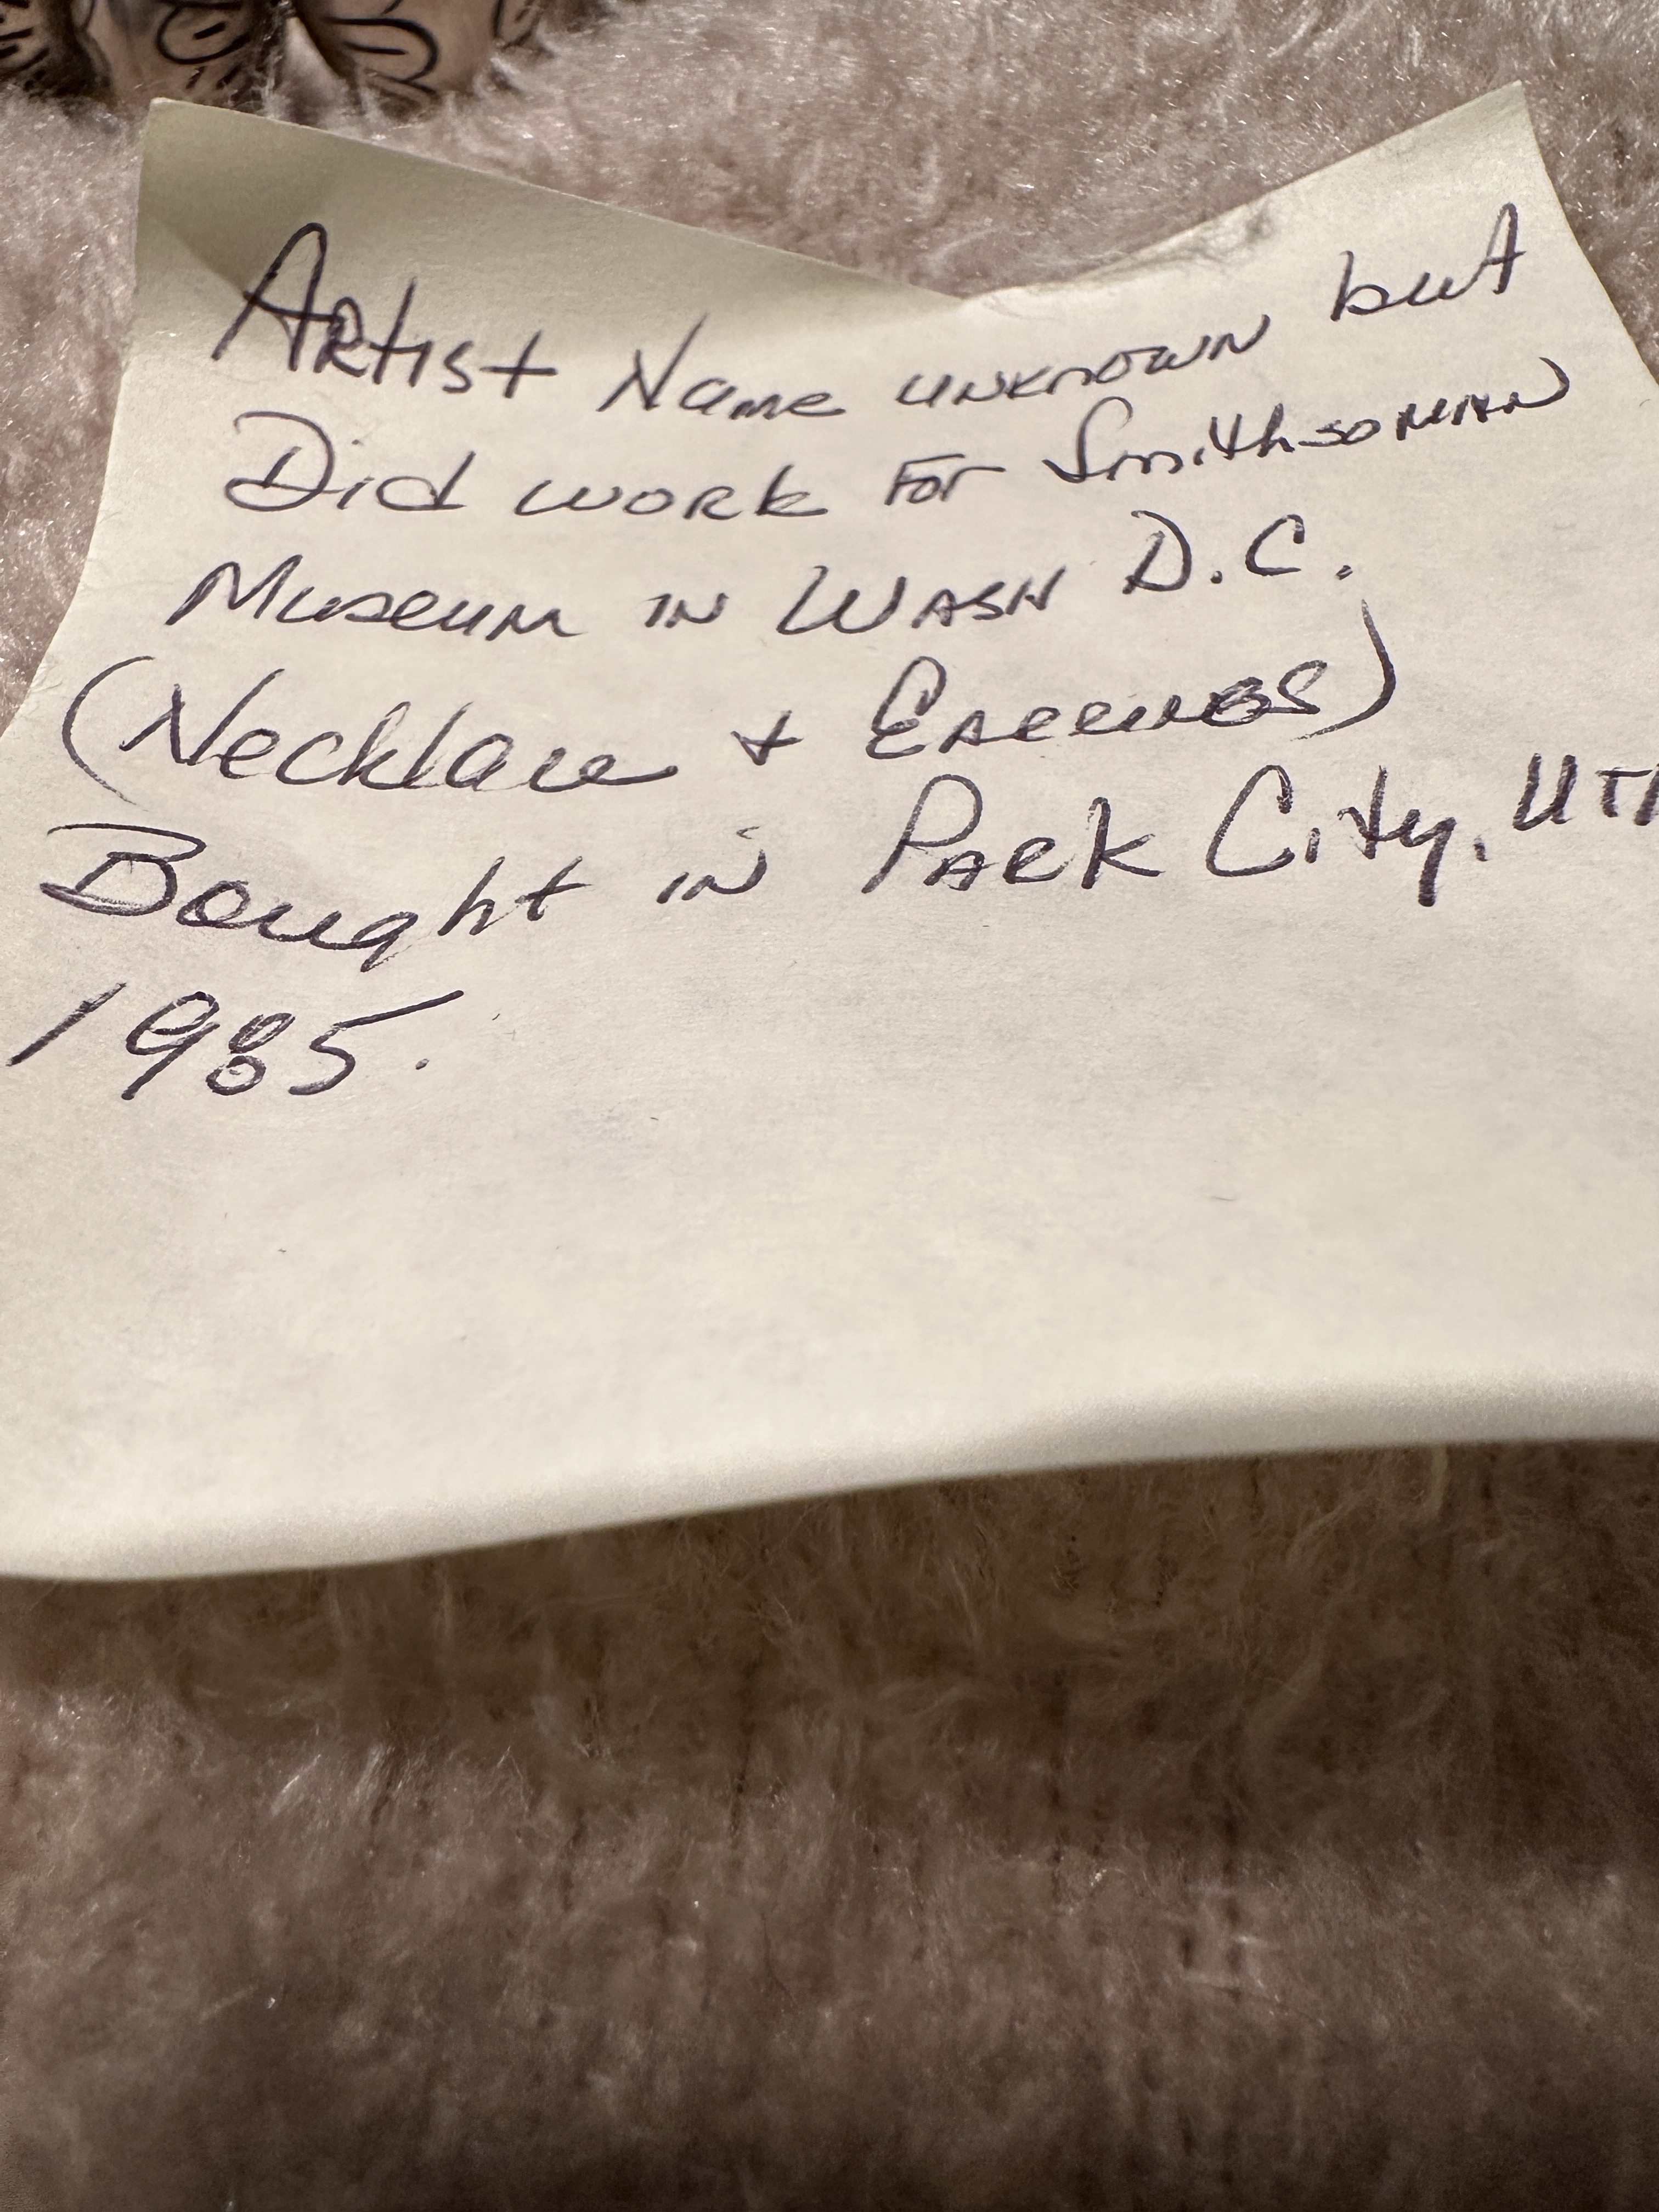 Artist Name unknown but
Did work for Smithsonian
Museum in Wash D.C.
(Necklace + Earrings)
Bought in Park City, UT
1985.